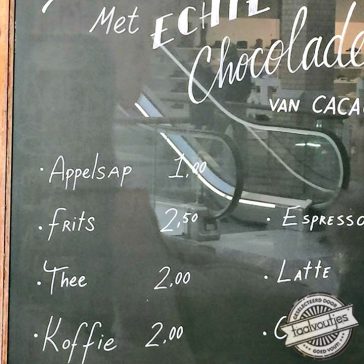 Met ECHTE
Chocolade
VAN CACA
· Appelsap 1,00
· fRits 2,50
· Espresso
· Thee 2,00
· Latte
· Koffie 2,00
· C
GESELECTEERD DOOR
taalvoutjes
GOED VOUT!